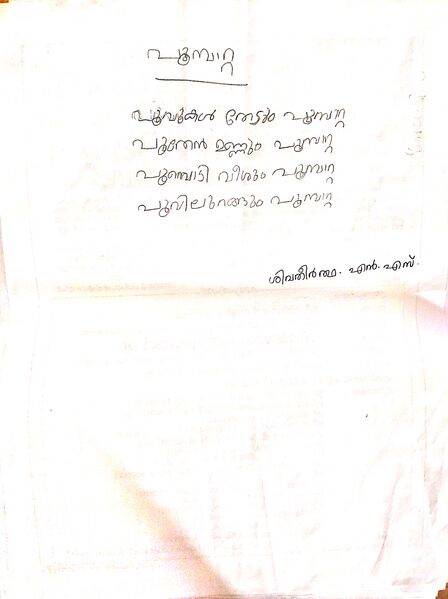 പൂമ്പാറ്റ
പൂവുകൾ തേടും പൂമ്പാറ്റ
പൂന്തേൻ ഉണ്ണും പൂമ്പാറ്റ
പൂമ്പൊടി വീശും പൂമ്പാറ്റ
പൂവിലുറങ്ങും പൂമ്പാറ്റ
ശിവതീർത്ഥ. എൻ. എസ്.